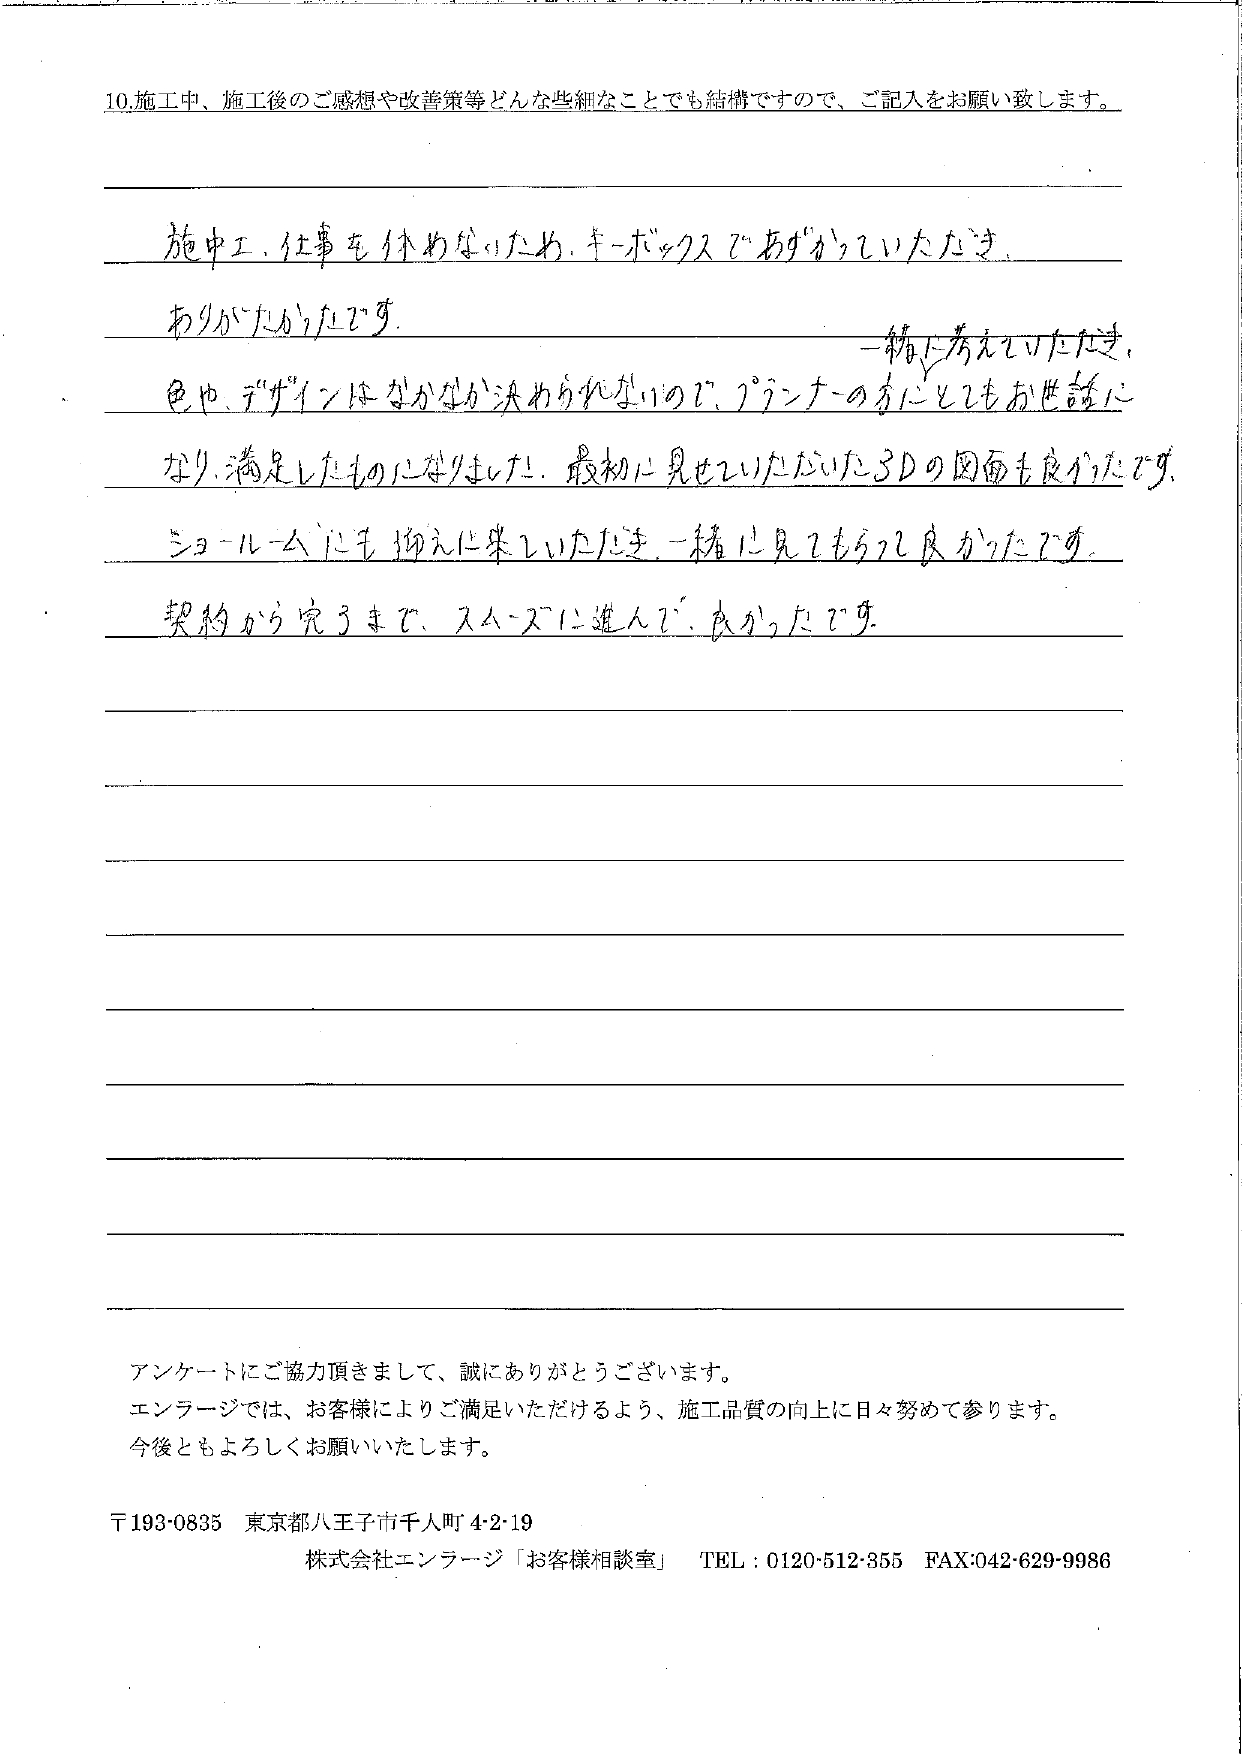 10.施工中、施工後のご感想や改善策等どんな些細なことでも結構ですので、ご記入をお願い致します。
施中工、仕事を休めないため、キーボックスであずかっていただき、
ありがたかったです。
一緒に考えていただき、
色や、デザインはなかなか決められないので、プランナーの方にとてもお世話に
なり、満足したものになりました。最初に見せていただいた3Dの図面も良かったです。
ショールームにも抑えに来ていただき、一緒に見てもらって良かったです。
契約から完うまで、スムーズに進んで、良かったです。
アンケートにご協力頂きまして、誠にありがとうございます。
エンラージでは、お客様によりご満足いただけるよう、施工品質の向上に日々努めて参ります。
今後ともよろしくお願いいたします。
〒193-0835　東京都八王子市千人町 4-2-19
株式会社エンラージ「お客様相談室」　TEL：0120-512-355　FAX:042-629-9986